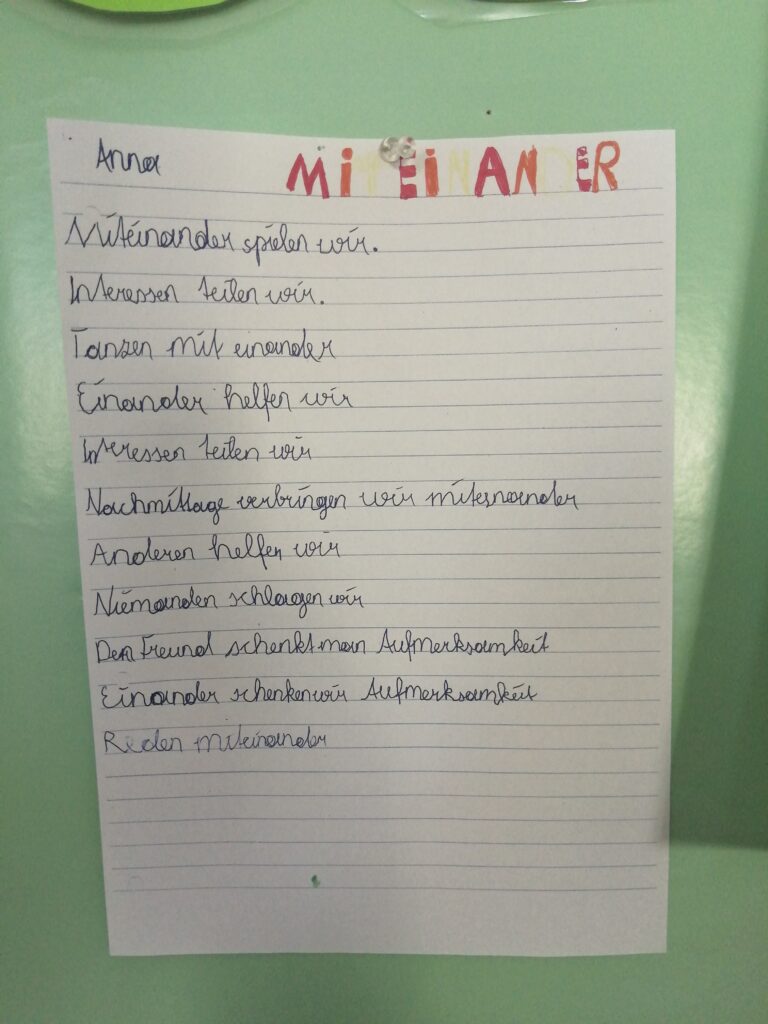 Anna MiTEiNANDER
Miteinander spielen wir.
Interessen teilen wir.
Tanzen mit einander
Einander helfen wir
Interessen teilen wir
Nachmittage verbringen wir miteinander
Anderen helfen wir
Niemanden schlagen wir
Den Freund schenkt man Aufmerksamkeit
Einander schenken wir Aufmerksamkeit
Reden miteinander